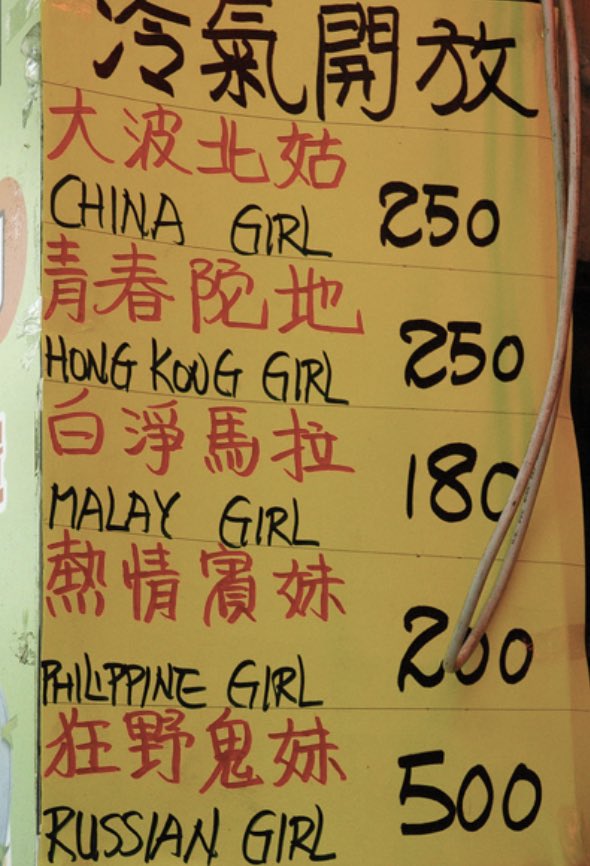 冷氣開放
大波北姑
CHINA GIRL 250
青春陀地
HONG KONG GIRL 250
白淨馬拉
MALAY GIRL 180
熱情賓妹
PHILIPPINE GIRL 200
狂野鬼妹
RUSSIAN GIRL 500